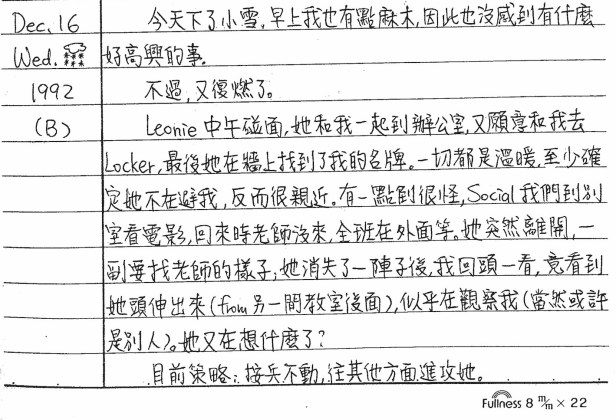 Dec. 16 今天下了小雪,早上我也有點麻木,因此也沒感到有什麼
Wed. 好高興的事.
1992 不過,又復燃了。
(B) Leonie 中午碰面,她和我一起到辦公室,又願意和我去
Locker,最後她在牆上找到了我的名牌。一切都是溫暖,至少確
定她不在避我,反而很親近。有一點倒很怪,Social 我們到別
室看電影,回來時老師沒來,全班在外面等。她突然離開,一
副要找老師的樣子;她消失了一陣子後,我回頭一看,竟看到
她頭伸出來(from 另一間教室後面),似乎在觀察我(當然或許
是別人)。她又在想什麼了?
目前策略:按兵不動,往其他方面進攻她。
Fullness 8 m/m × 22